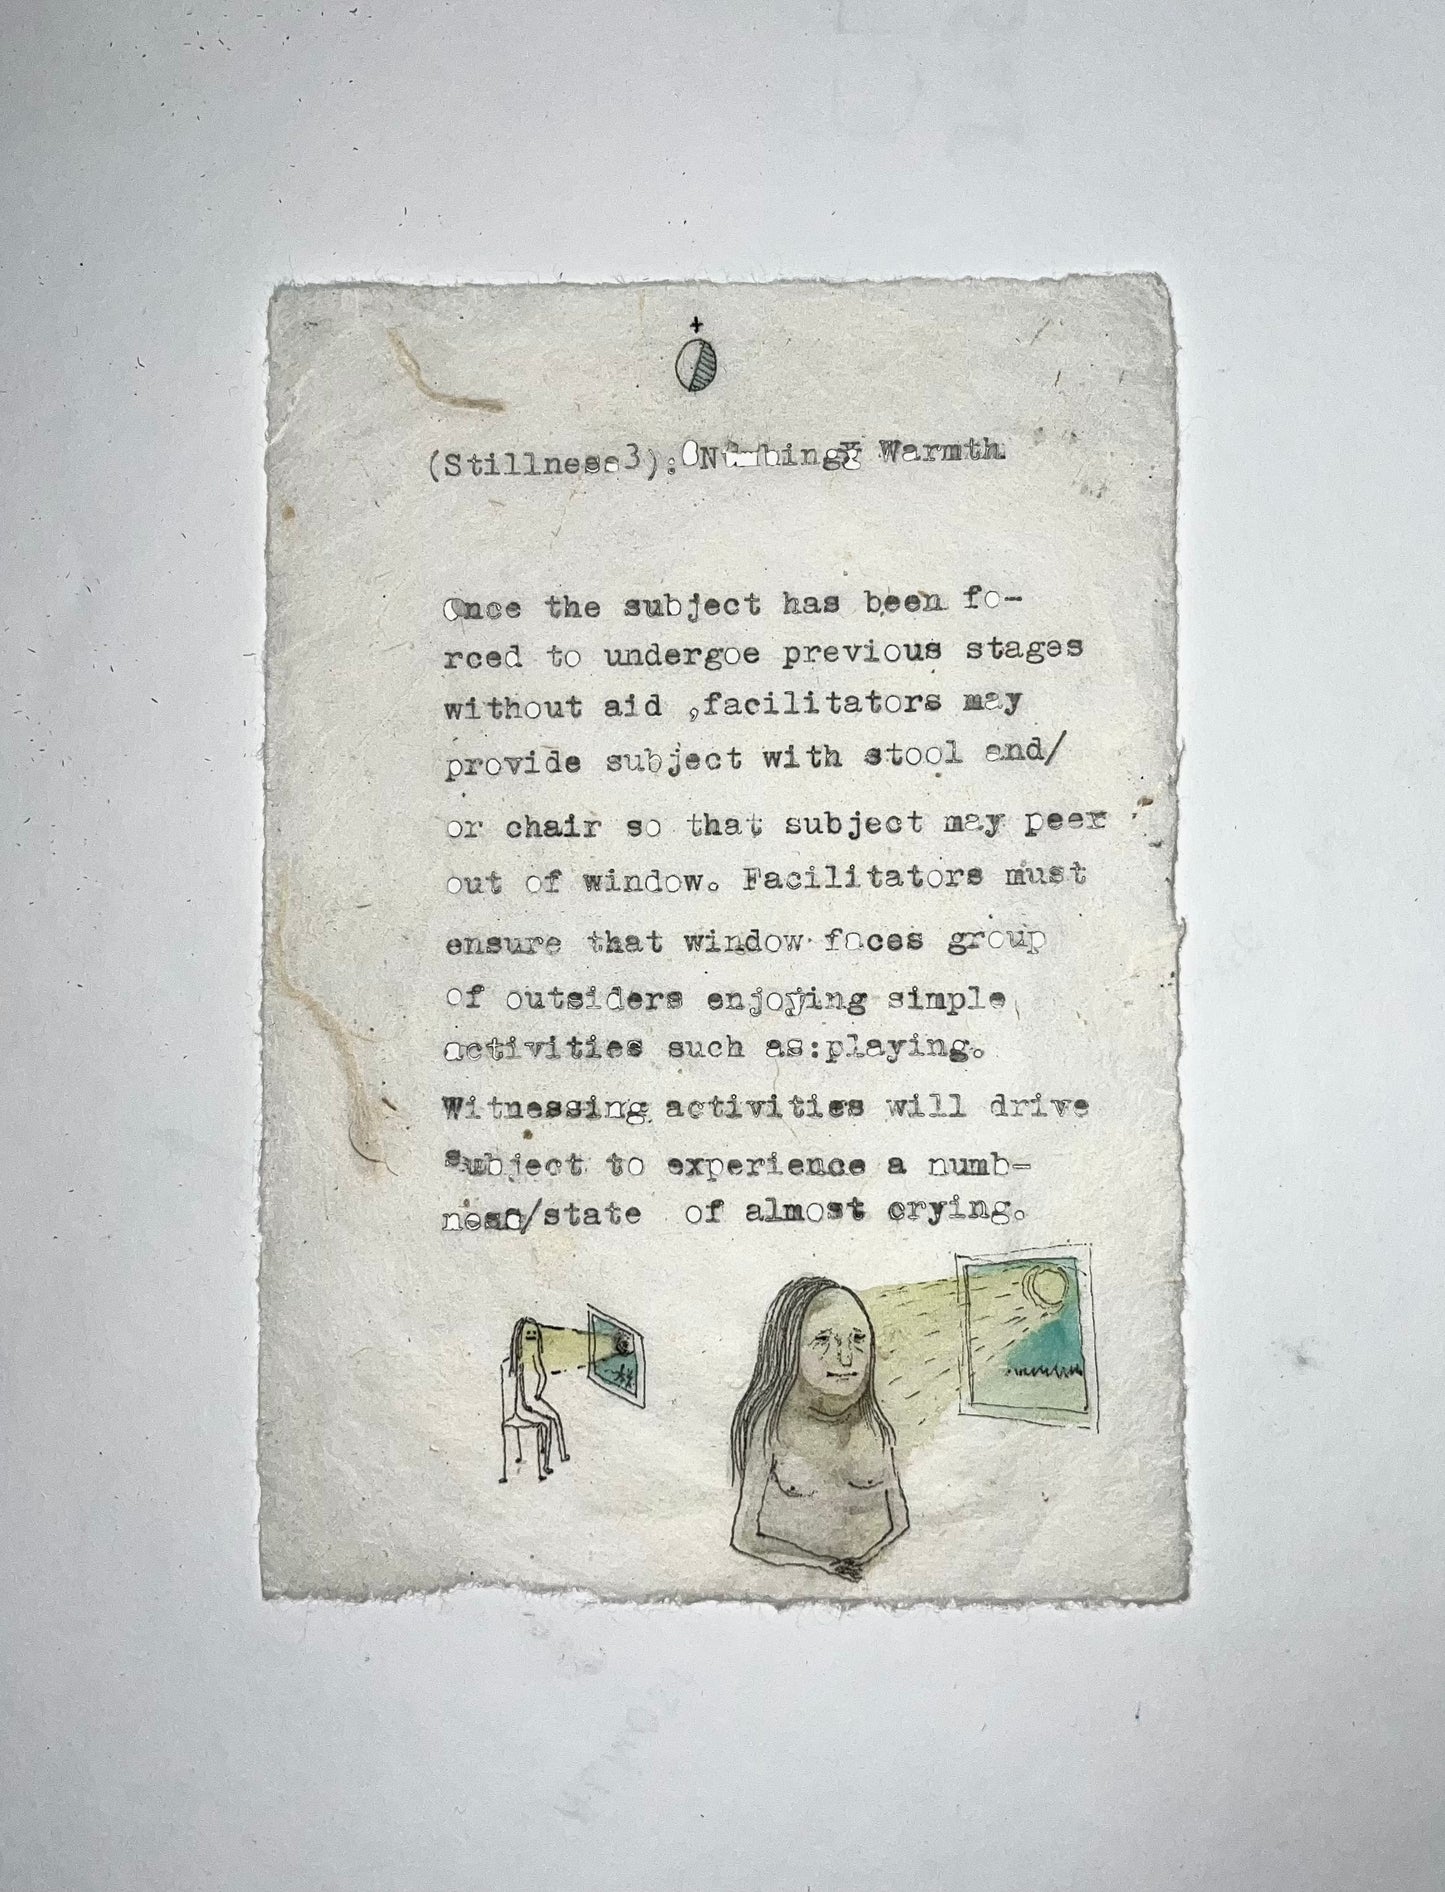 (Stillness3): Numbing Warmth
Once the subject has been fo-
rced to undergoe previous stages
without aid ,facilitators may
provide subject with stool and/
or chair so that subject may peer
out of window. Facilitators must
ensure that window faces group
of outsiders enjoying simple
activities such as:playing.
Witnessing activities will drive
subject to experience a numb-
ness/state of almost crying.